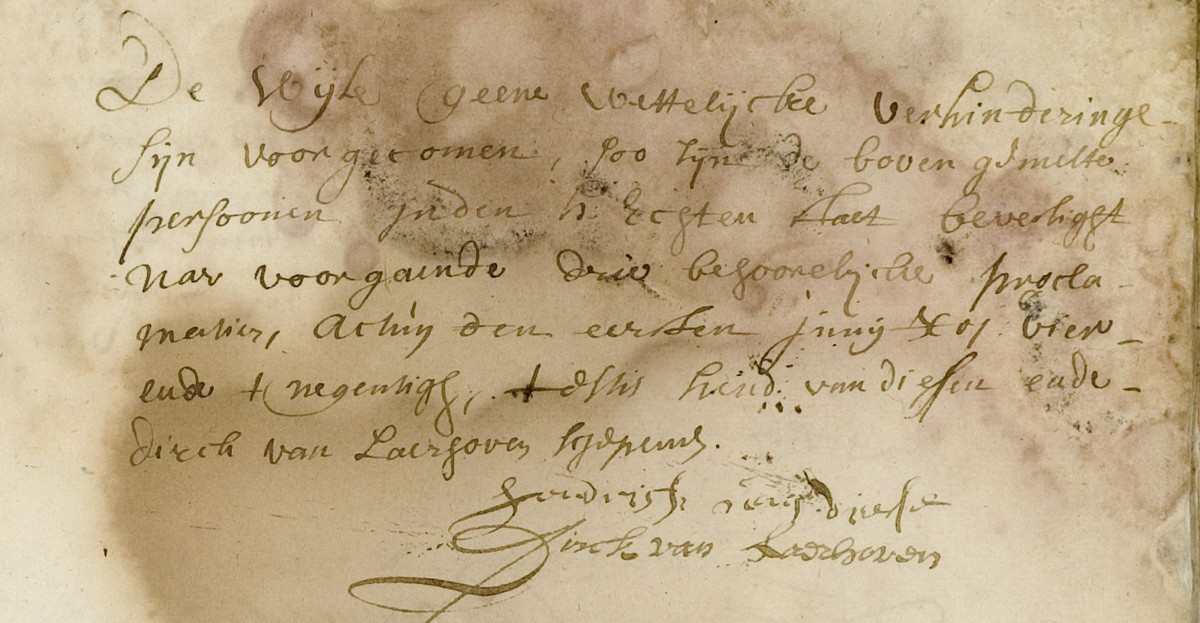 De Wijle geene wettelijcke verhinderinge-
sijn voorgecomen, soo sijn de boven gemelte
persoonen inden h. Echten staet bevestight
Nar voorgaende drie behoorelijcke procla-
matien, Actum den eersten junij vier-
ende + negentigh, testis hend. van diesen ende-
dirck van Laerhoven schepens.
hendrick van diese
Dirck van Laerhoven